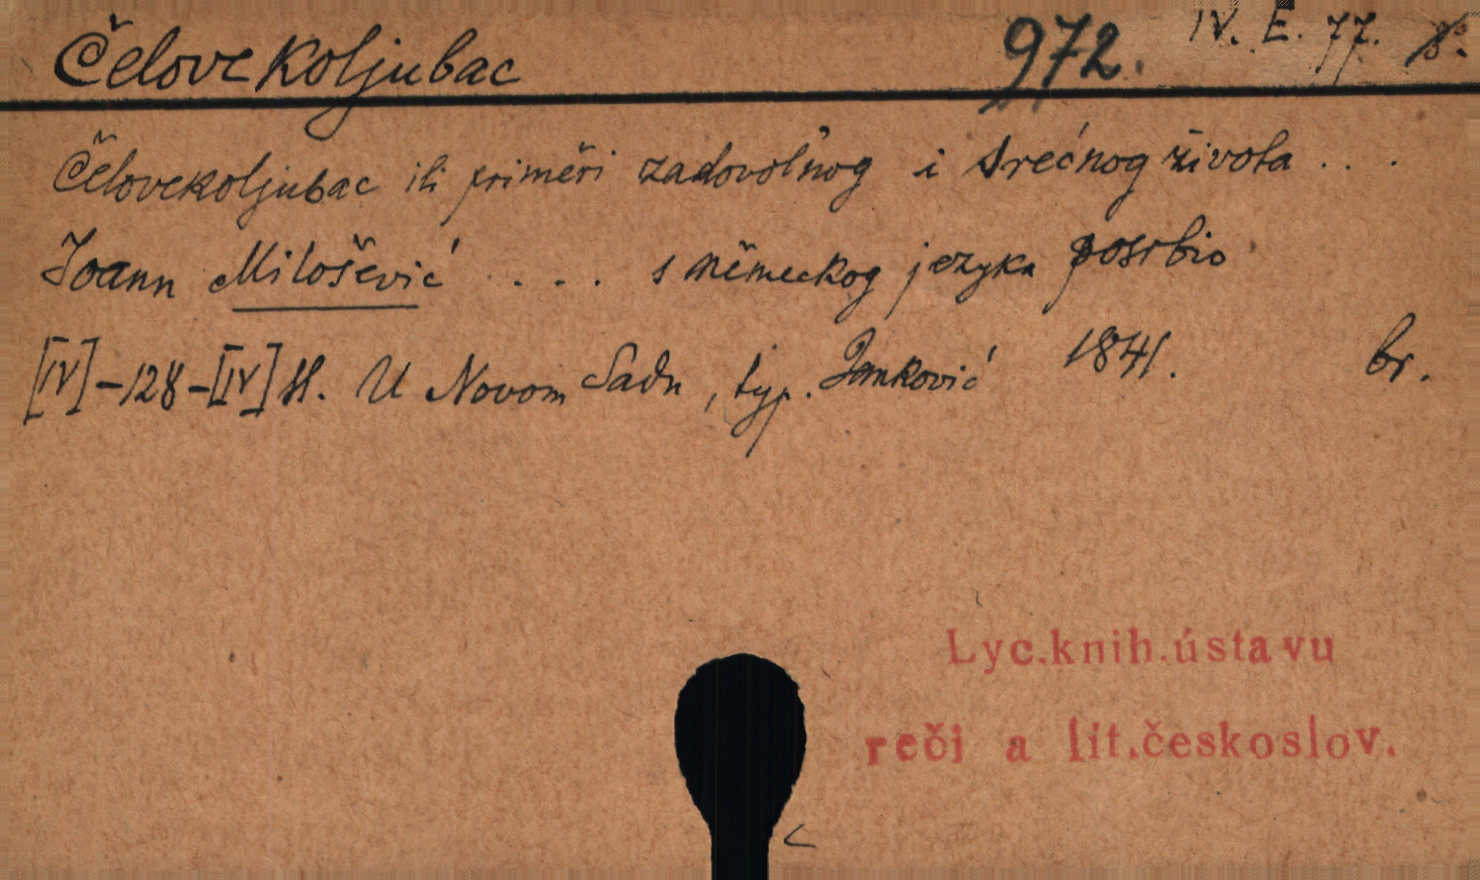 Čelovekoljubac 972. IV. E. 77. 8°.
Čelovekoljubac ili priměri zadovolňog i srećnog života . . .
Joann Milošević . . . . s německog jezyka posrbio
[IV]-128-[IV] S. U Novom Sadu, typ. Janković 1841. br.
Lyc.knih.ústavu
reči a lit.českoslov.